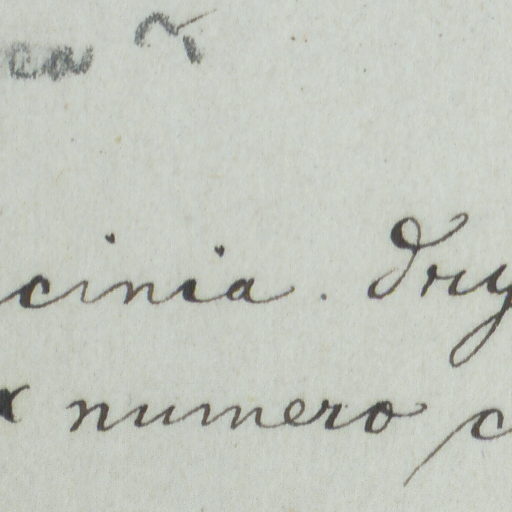 cinia. Dry
x numero c